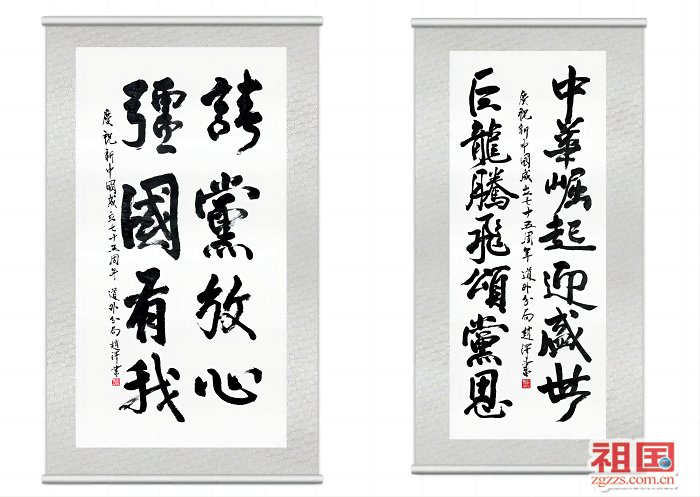 請黨放心
彊國有我
慶祝新中國成立七十五周年 道外分局 趙洋書
中华崛起迎盛世
巨龍騰飛頌黨恩
慶祝新中國成立七十五周年 道外分局 趙洋書
祖国
zgzzs.com.cn